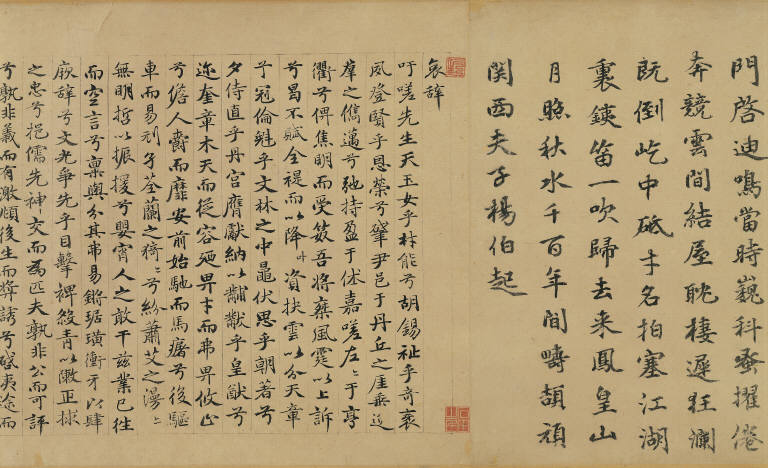 門啓迪鳴當時巍科蚤擢倦
奔競雲間結屋眈棲遲狂瀾
既倒屹中砥才名拍塞江湖
裏鐵笛一吹歸去来鳳皇山
月照秋水千百年間疇頡頏
関西夫子楊伯起
哀辞
吁嗟先生天玉女乎材能兮胡錫祉乎奇衺
夙登賢乎恩榮兮肇尹邑于丹丘之厓乘逸
羣之儁邁兮弛持盈于怵嘉嗟左〻于亨
衢兮俾焦明而受笯吾将藥風霆以上訴
兮曷不賦全禔而以降資扶雲以分天章
于冠倫魁乎文林之中黽伏思乎朝著兮
夕侍直乎丹宮膺獻納以黼黻乎皇猷兮
迩奎章木天而從容廼畀才而弗畀攸止
兮儋人爵而靡安前始馳而馬瘏兮後驅
車而易刓荃蘭之猗〻兮紛蕭艾之漫〻
無明哲以振援兮嬰宵人之敢干兹業已徃
而空言兮稟與分其弗易鏘琚璜衝牙以肆
厥辞兮文光爭先乎目擊裨綬青以正捄
之忠兮挹儒先神交而為匹夫孰非公而可評
兮孰非義而有激順後生而奨誘兮啓夷途而